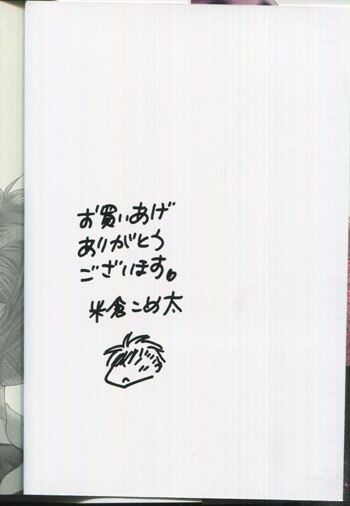 お買いあげ
ありがとう
ございます。
米倉こめ太